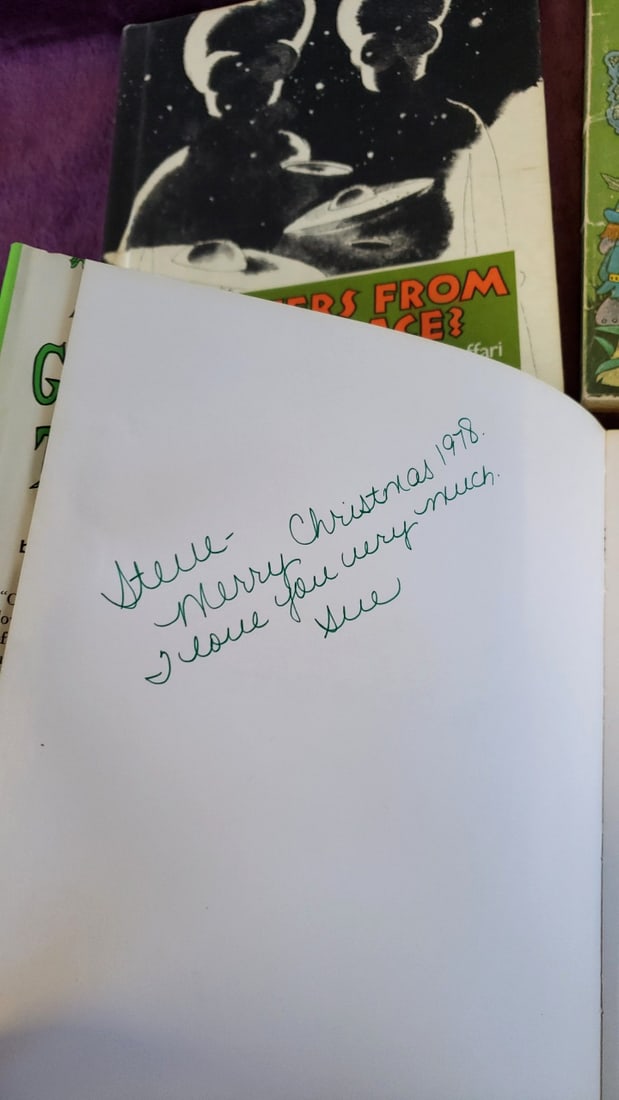 ERS FROM
ACE?
ffari
G
Steve-
Merry Christmas 1978.
I love you very much.
Sue